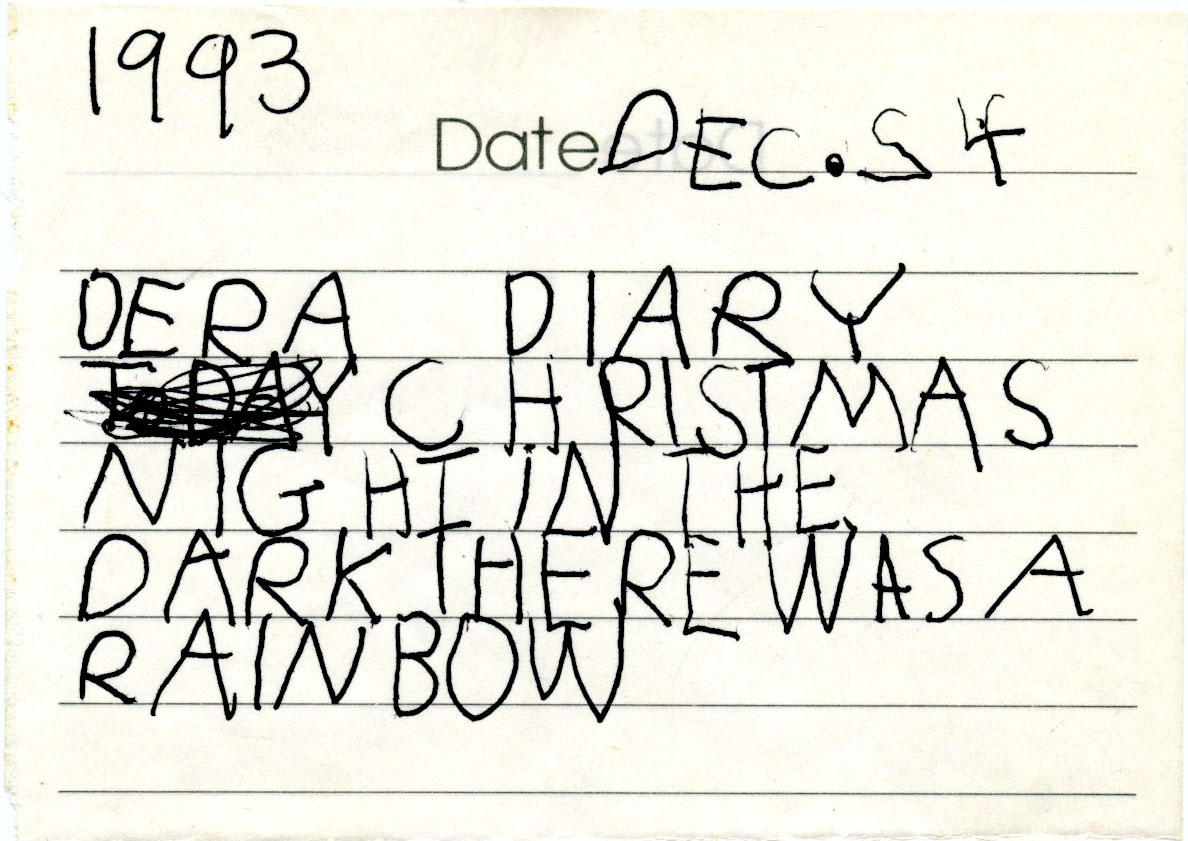 1993
Date DEC. 24
DERA DIARY
CHRISTMAS
NIGHT IN THE
DARK THERE WAS A
RAINBOW